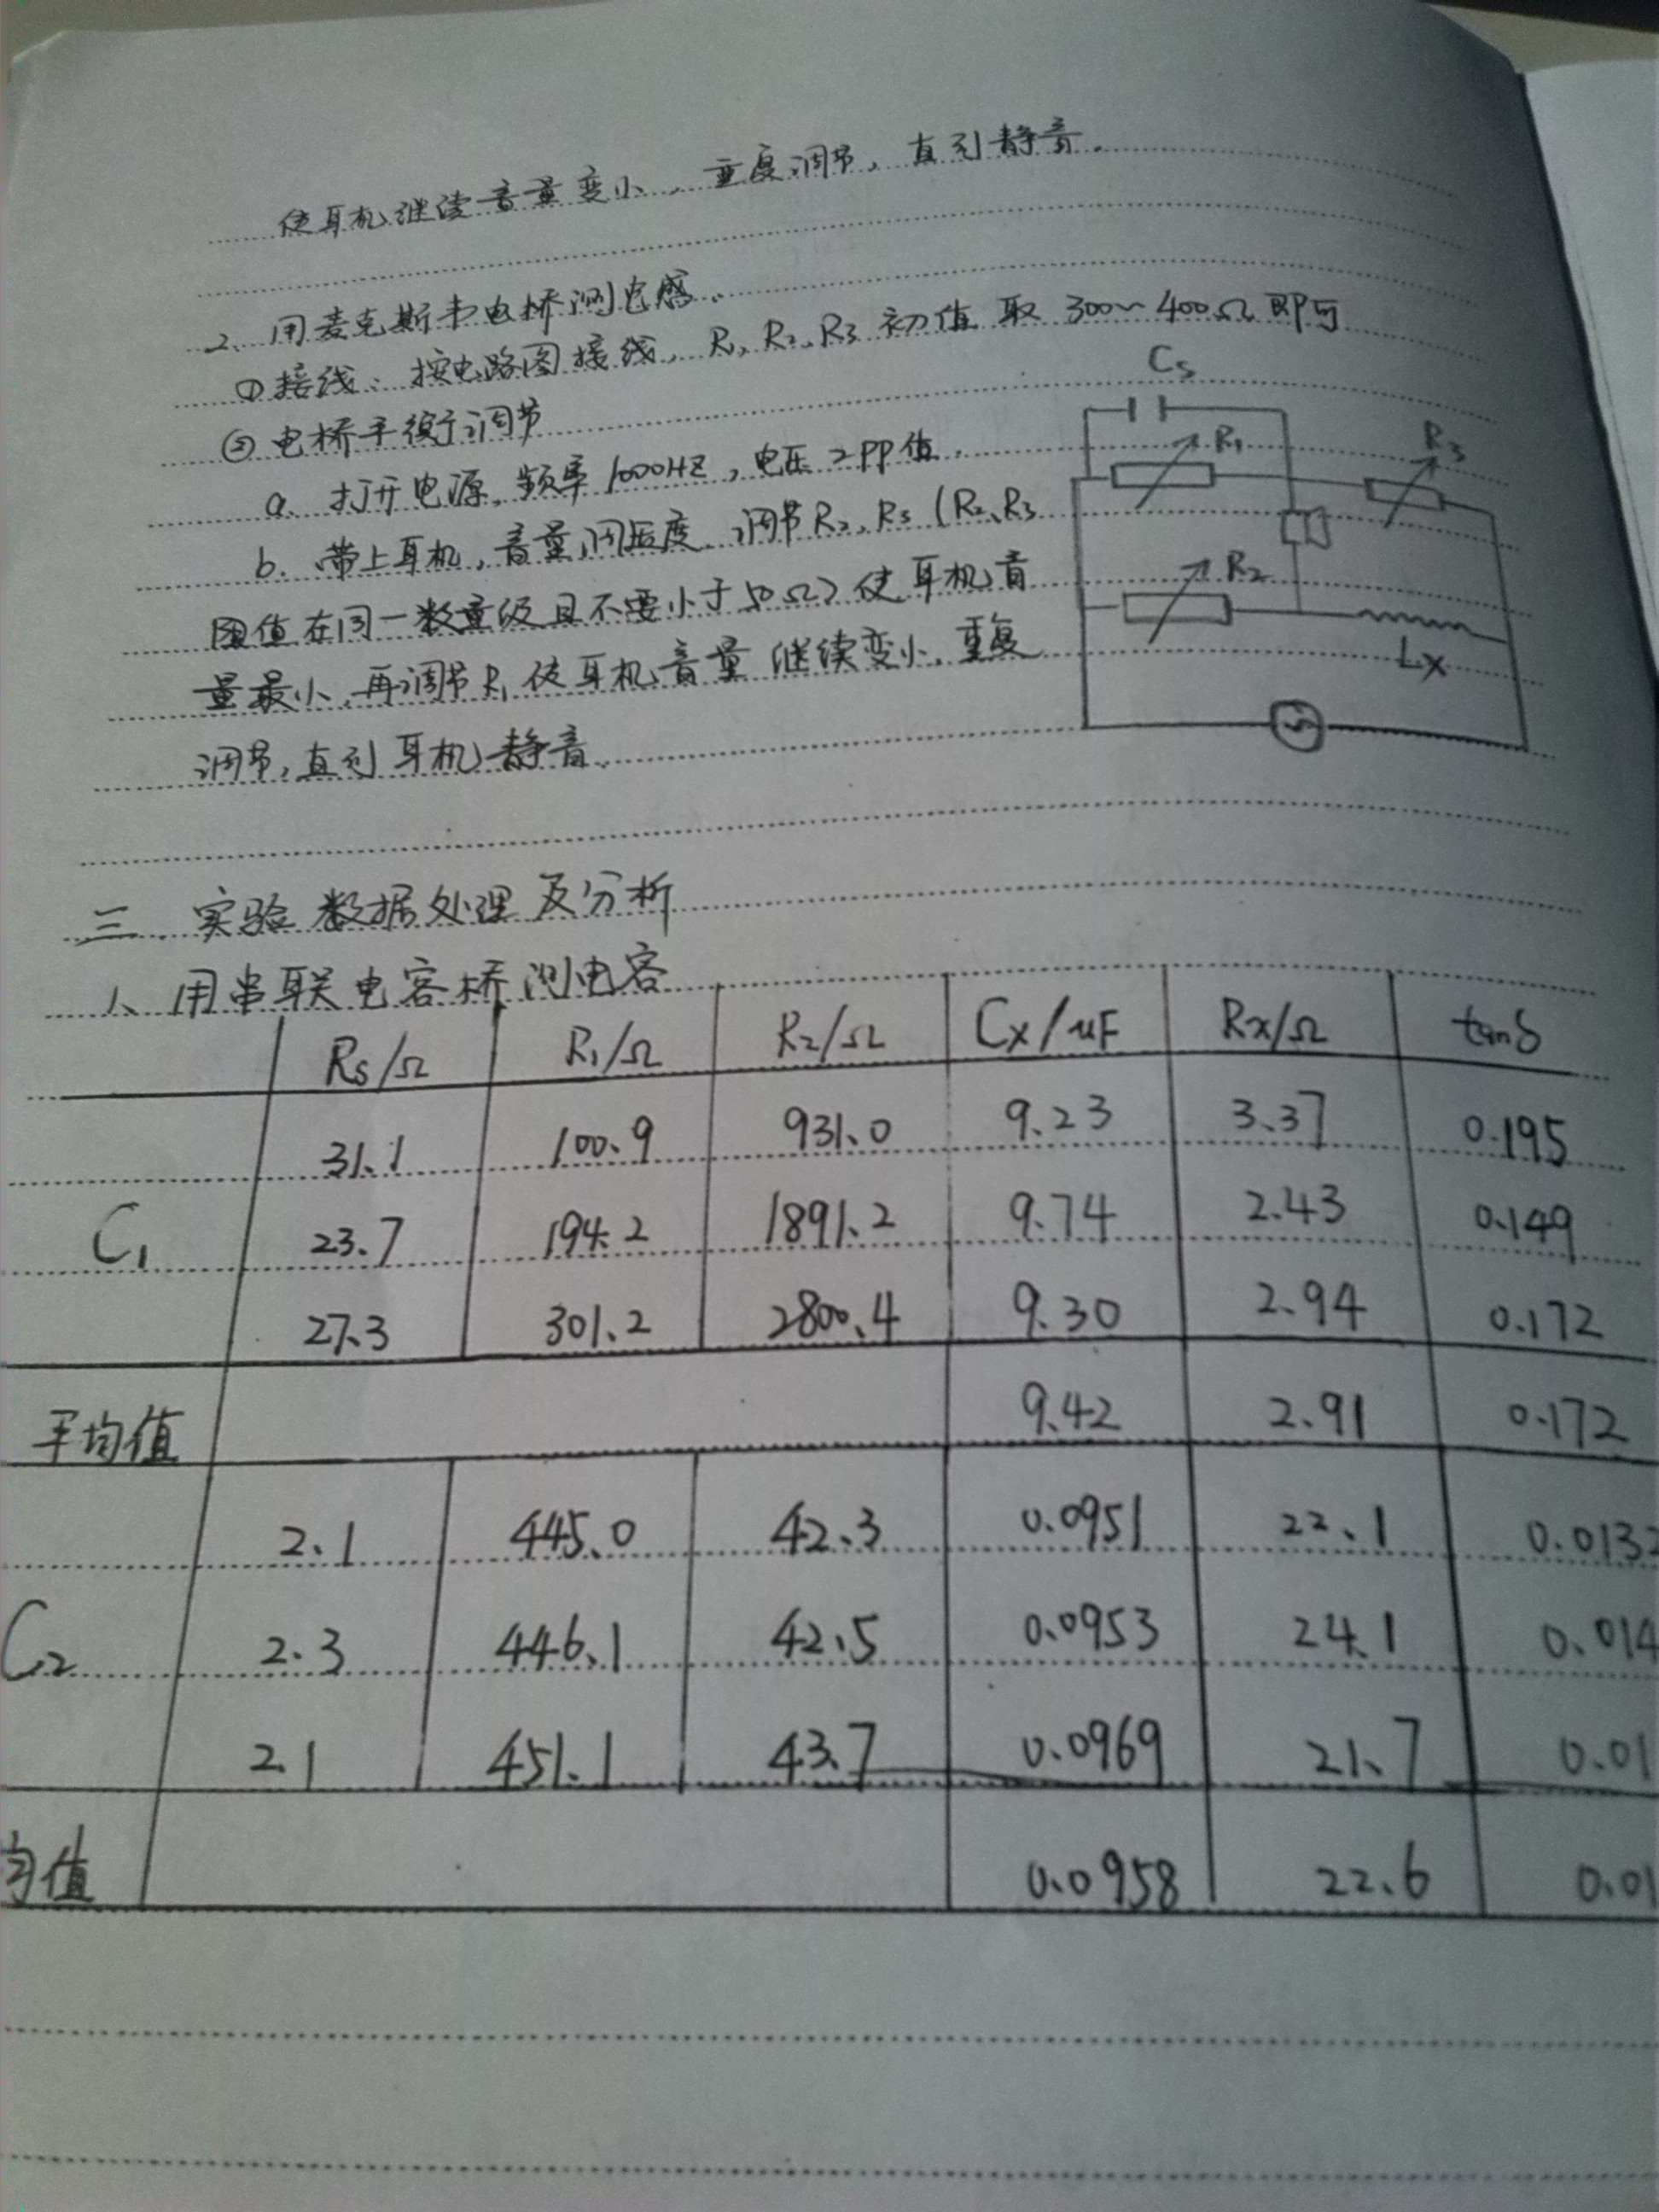 使耳机继续音量变小，重复调节，直到静音.
2、用麦克斯韦电桥测电感、
①接线：按电路图接线，R₁, R₂, R₃ 初值取 300~400Ω 即可
②电桥平衡调节
a. 打开电源，频率1000HZ，电压2PP值.
b. 带上耳机，音量调适度，调节R₂, R₃ (R₂、R₃
阻值在同一数量级且不要小于50Ω) 使耳机音
量最小，再调节R₁ 使耳机音量继续变小，重复
调节，直到耳机静音.
Cs
R₁
R₃
R₂
Lx
三、实验数据处理及分析
1、用串联电容桥测电容
Rs/Ω R₁/Ω R₂/Ω Cx/uF Rx/Ω tanδ
31.1 100.9 931.0 9.23 3.37 0.195
C₁ 23.7 194.2 1891.2 9.74 2.43 0.149
27.3 301.2 2800.4 9.30 2.94 0.172
平均值 9.42 2.91 0.172
2.1 445.0 42.3 0.0951 22.1 0.0132
C₂ 2.3 446.1 42.5 0.0953 24.1 0.014
2.1 451.1 43.7 0.0969 21.7 0.01
均值 0.0958 22.6 0.01